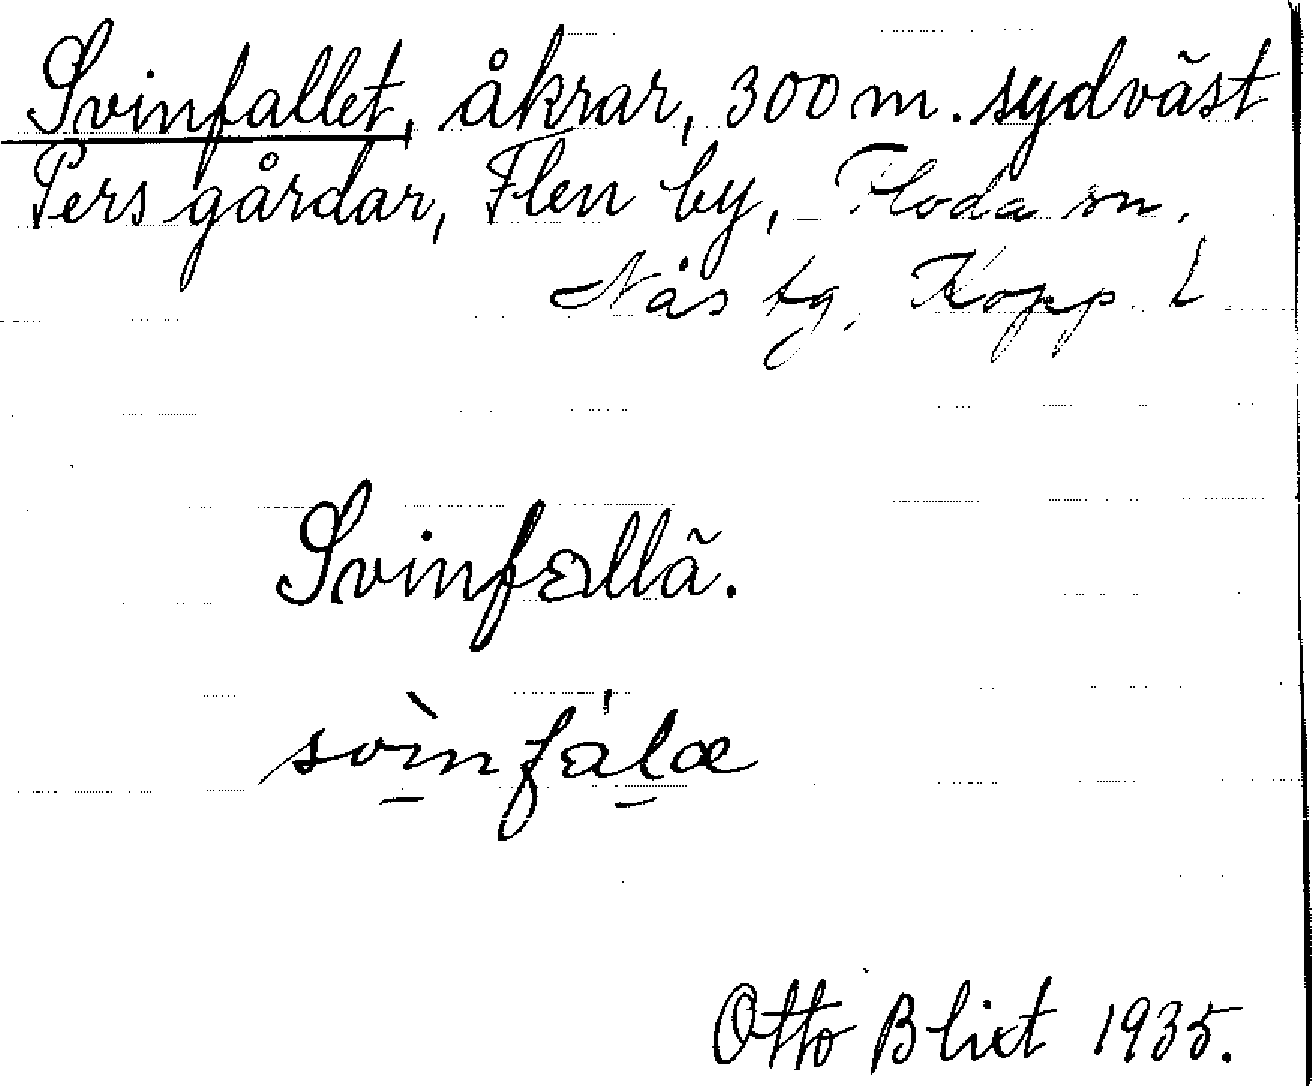 Svinfallet, åkrar, 300 m. sydväst
Pers gårdar, Flen by, Floda sn.
Nås tg, Kopp. l
Svinfallä.
svìnfálæ
Otto Blixt 1935.